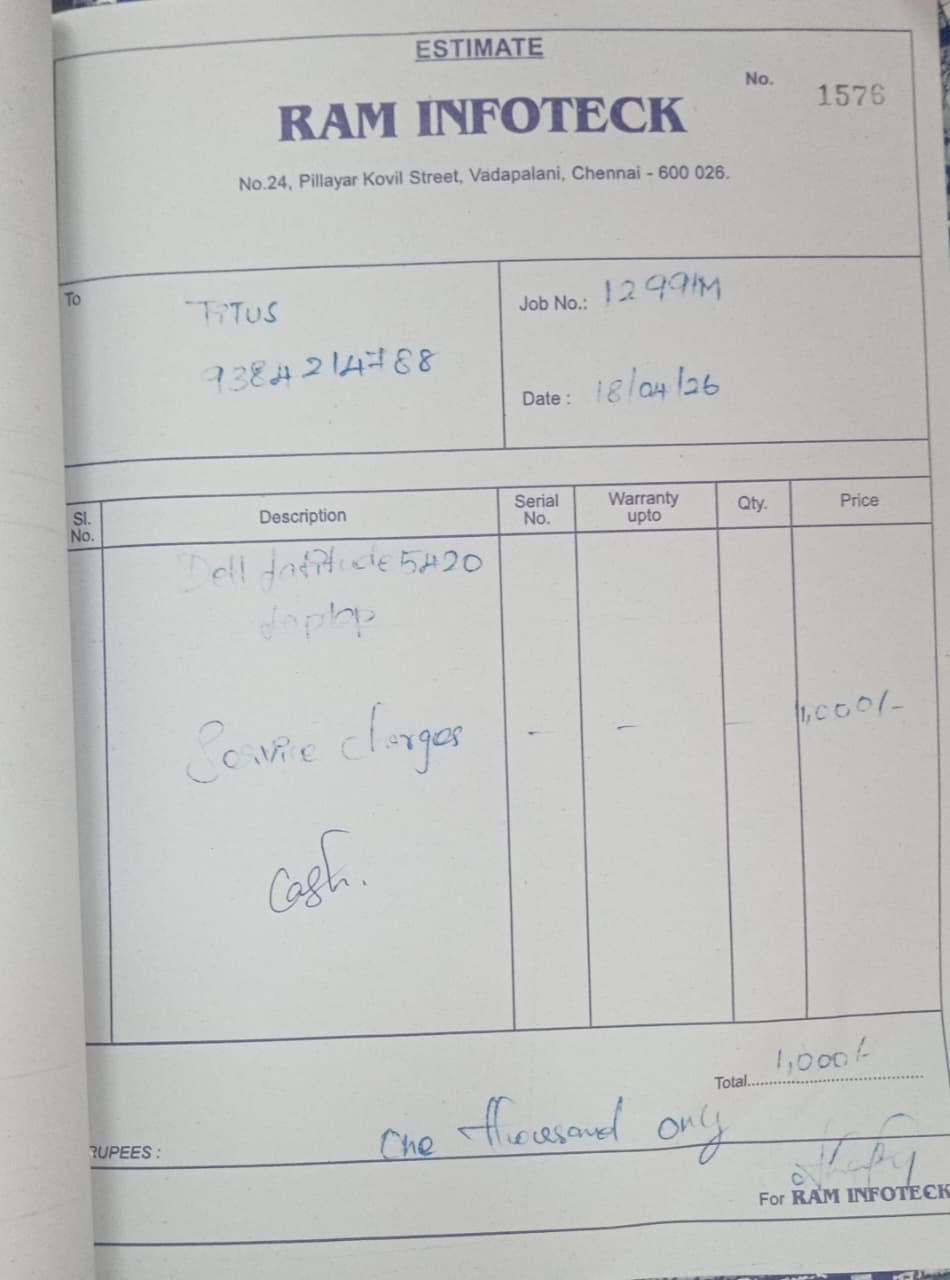 ESTIMATE
No. 1576
RAM INFOTECK
No.24, Pillayar Kovil Street, Vadapalani, Chennai - 600 026.
To
TITUS
9384214788
Job No.: 1299/M
Date : 18/04/26
Sl. No. Description Serial No. Warranty upto Qty. Price
Dell Latitude 5420
Laptop
Service charges - - - 1,000/-
Cash.
Total 1,000/-
RUPEES : One thousand only
For RAM INFOTECK